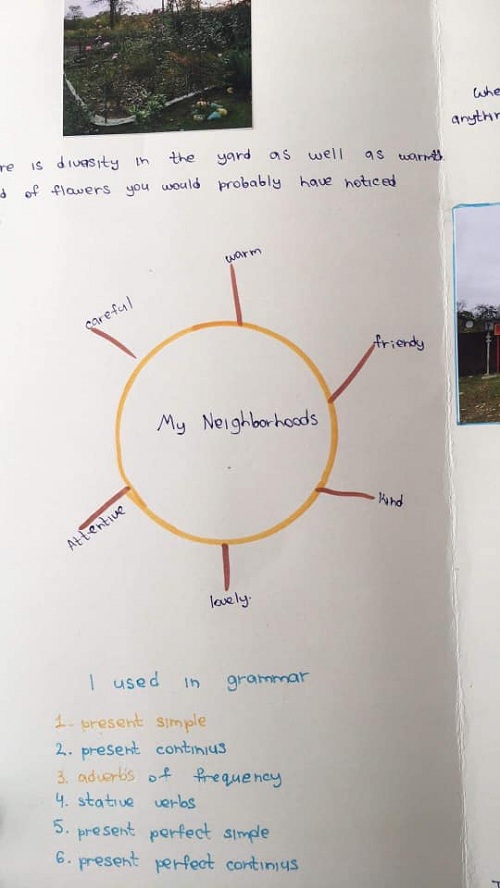 re is divesity in the yard as well as warmth.
d of flowers you would probably have noticed
whe
anythin
warm
careful
friendy
My Neighborhoods
Kind
Attentive
lovely.
I used in grammar
1. present simple
2. present continius
3. adverbs of frequency
4. stative verbs
5. present perfect simple
6. present perfect continius